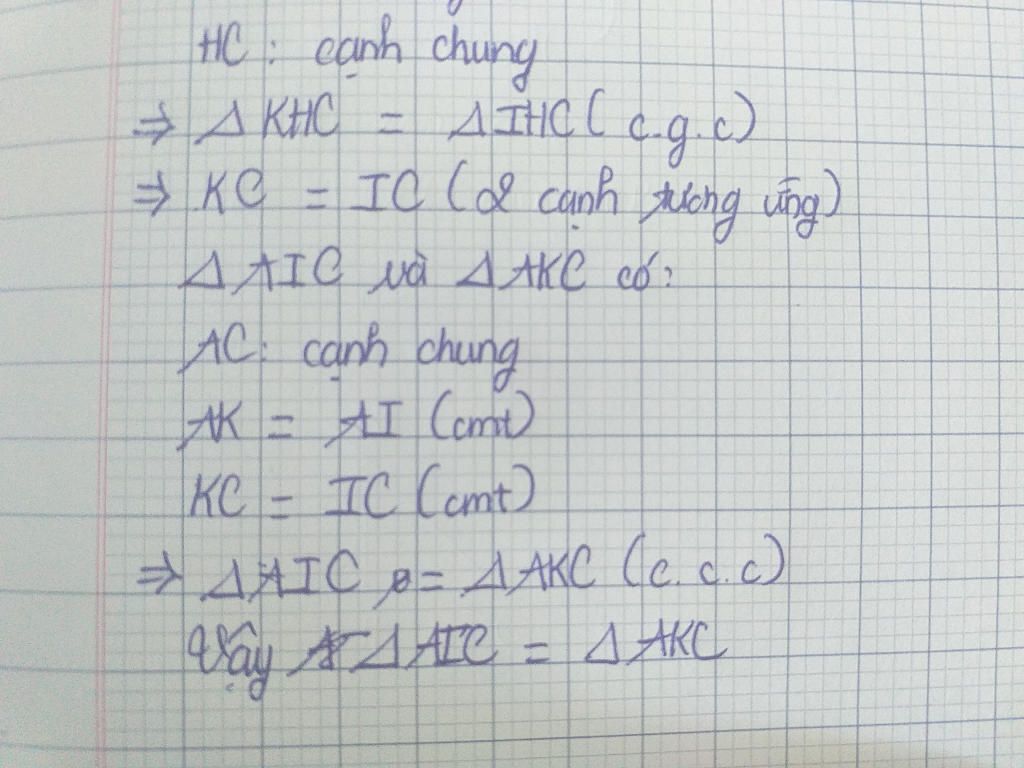 HC: cạnh chung
⇒ Δ KHC = Δ IHC ( c.g.c)
⇒ KC = IC (2 cạnh tương ứng)
Δ AIC và Δ AKC có:
AC: cạnh chung
AK = AI (cmt)
KC = IC (cmt)
⇒ Δ AIC = Δ AKC (c.c.c)
Vậy Δ AIC = Δ AKC